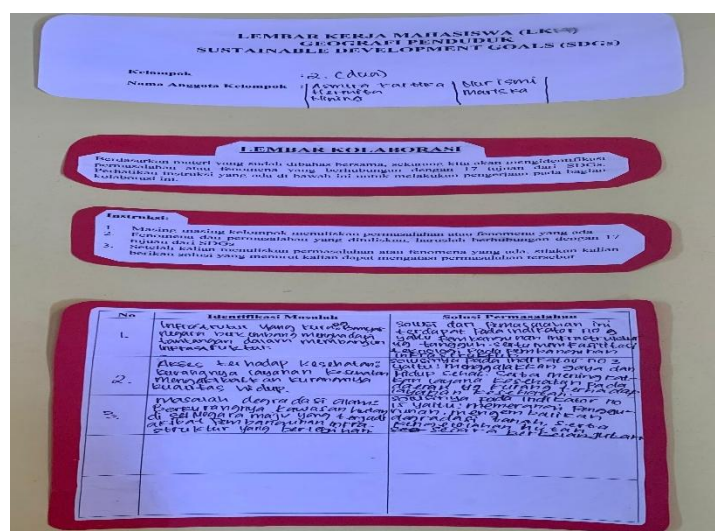 LEMBAR KERJA MAHASISWA (LKM)
GEOGRAFI PENDUDUK
SUSTAINABLE DEVELOPMENT GOALS (SDGs)
Kelompok : 2. (dua)
Nama Anggota Kelompok : Asmira Kartika | Nurismi
Hermita | Mariska
LEMBAR KOLABORASI
Berdasarkan materi yang sudah dibahas bersama, sekarang kita akan mengidentifikasi
permasalahan atau fenomena yang berhubungan dengan 17 tujuan dari SDGs.
Perhatikan instruksi yang ada di bawah ini untuk melakukan pengerjaan pada bagian
kolaborasi ini.
Instruksi:
1. Masing masing kelompok menuliskan permasalahan atau fenomena yang ada
2. Fenomena dan permasalahan yang dituliskan, haruslah berhubungan dengan 17
tujuan dari SDGs
3. Setelah kalian menuliskan permasalahan atau fenomena yang ada, silakan kalian
berikan solusi yang menurut kalian dapat mengatasi permasalahan tersebut
No
Identifikasi Masalah
Solusi Permasalahan
1.
Infrastruktur yang kurang
negara berkembang menghadapi
tantangan dalam membangun
infrastruktur.
Solusi dari Permasalahan ini
terdapat Pada Indikator no 9
yaitu Pembangunan Infrastruktur
yg tangguh serta
Pembangunan
2.
Akses terhadap kesehatan:
kurangnya layanan kesehatan
mengakibatkan kurangnya
kualitas hidup.
solusinya Pada Indikator no 3
yaitu: menggalakkan gaya dan
hidup sehat serta
layanan kesehatan Pada
3.
Masalah degradasi alam:
berkurangnya kawasan hutan
di negara maju yang terjadi
akibat Pembangunan infra-
struktur yang berlebihan.
solusinya Pada Indikator no
15 yaitu: memerangi
mengembalikan
degradasi tanah, serta
Pengelolaan hutan
secara berkelanjutan